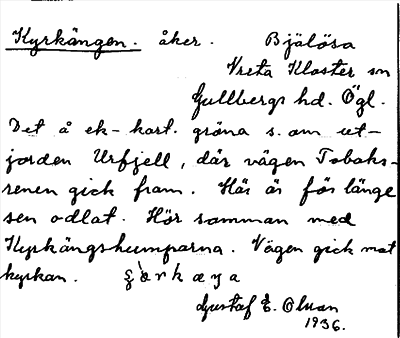 Kyrkängen. åker. Bjälösa
Vreta Kloster sn
Gullbergs hd. Ögl.
Det å ek-kart. gröna s. om ut-
jorden Urfjell, där vägen Tobaks-
renen gick fram. Här är för länge
sen odlat. Hör samman med
Kyrkängshumparna. Vägen gick mot
kyrkan.
Gustaf E. Olsson
1936.